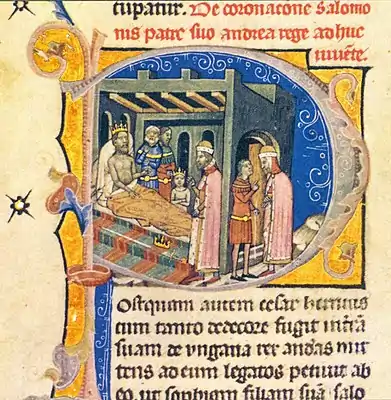 cupatur. De coronacōne Salomo
nis patre suo andrea rege adhuc
viuēte.
POstquam autem cesar henricus
cum tanto dedecore fugit
suam de vngaria rex andās mit
tens ad eum legatos petiuit ab
eo, ut sophiam filiam suā salo